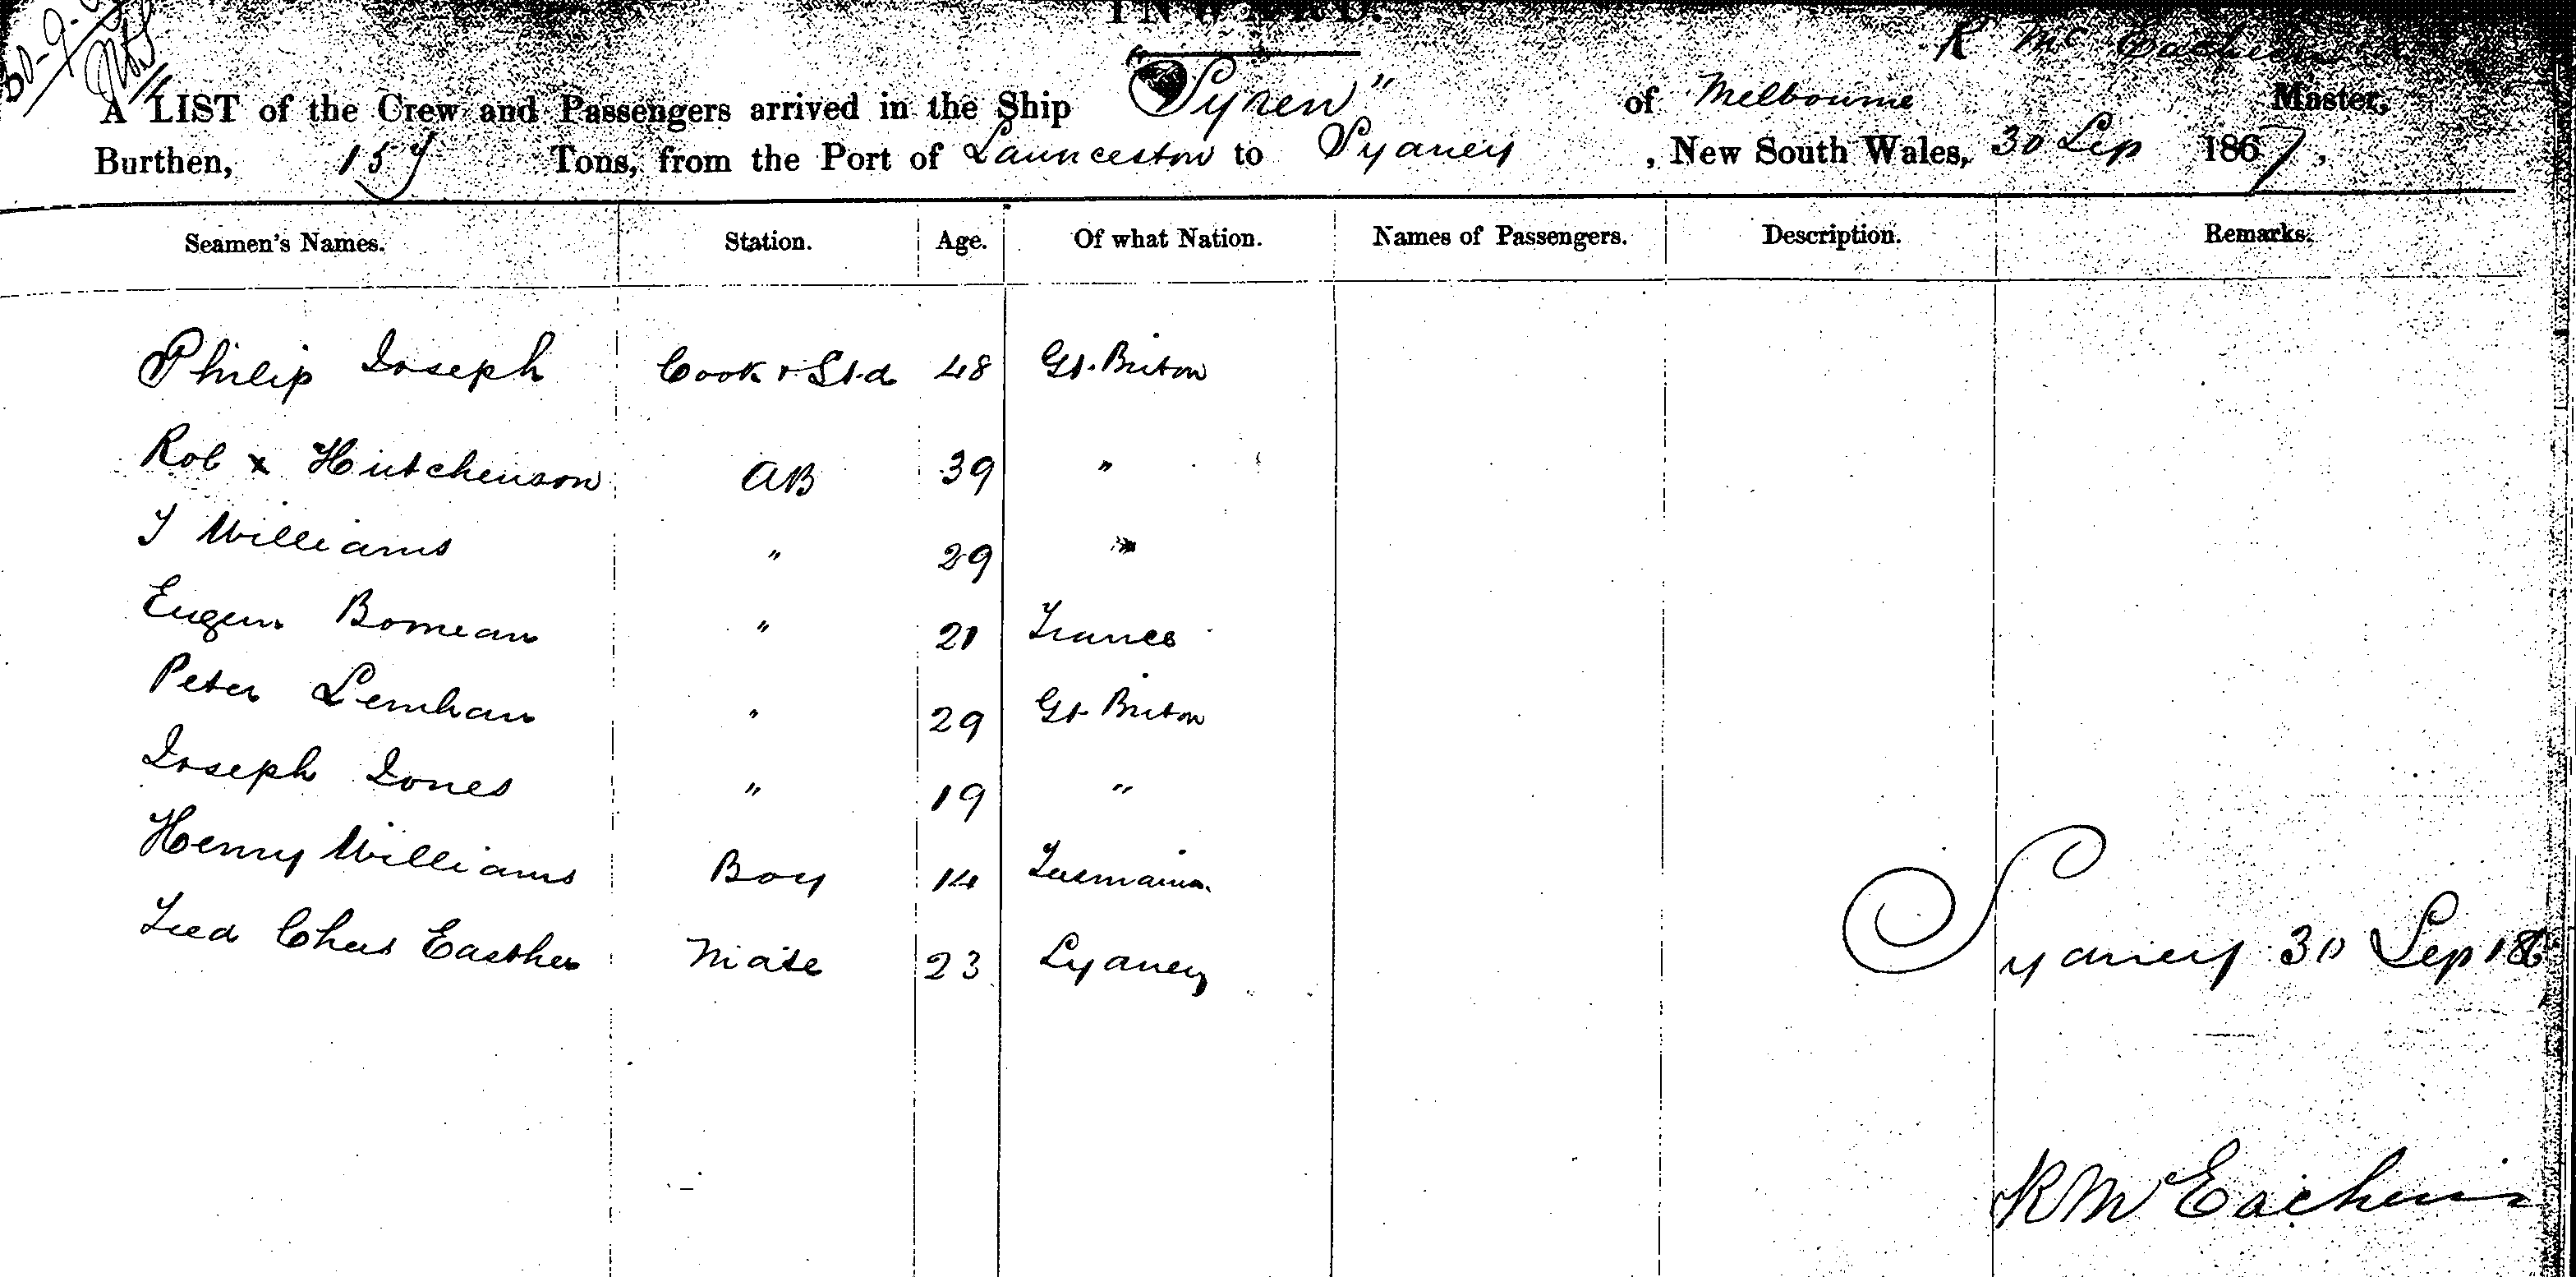 INWARD.
R Mc Eachern
A LIST of the Crew and Passengers arrived in the Ship "Syren" of Melbourne Master,
Burthen, 157 Tons, from the Port of Launceston to Sydney, New South Wales, 30 Sep 1867,
Seamen's Names. Station. Age. Of what Nation. Names of Passengers. Description. Remarks.
Philip Joseph Cook & Std 48 Gt. Briton
Rob x Hutchenson AB 39 "
J Williams " 29 "
Eugen Bomean " 21 France
Peter Lernhan " 29 Gt Briton
Joseph Jones " 19 "
Henry Williams Boy 14 Tasmania
Fred Chas Easther Mate 23 Sydney
Sydney 30 Sep 186
R Mc Eachern